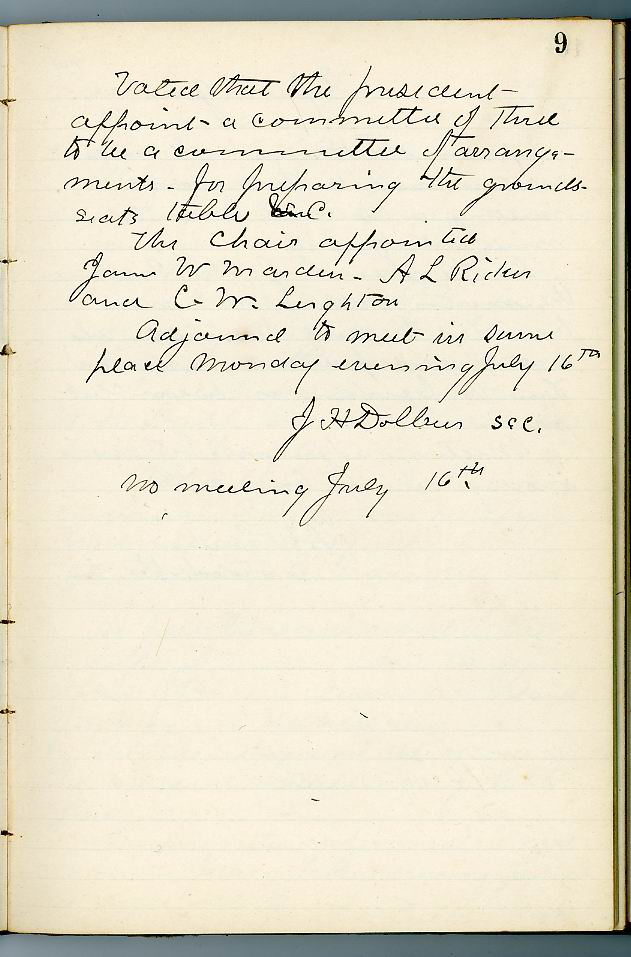 9
Voted that the president
appoint a committee of three
to be a committee of arrange-
ments - for preparing the grounds
seats table &c.
The Chair appointed
W Marden - A L Ricker
and C. W. Leighton
Adjourned to meet in same
place Monday evening July 16th
J H Dolbeer sec.
No meeting July 16th